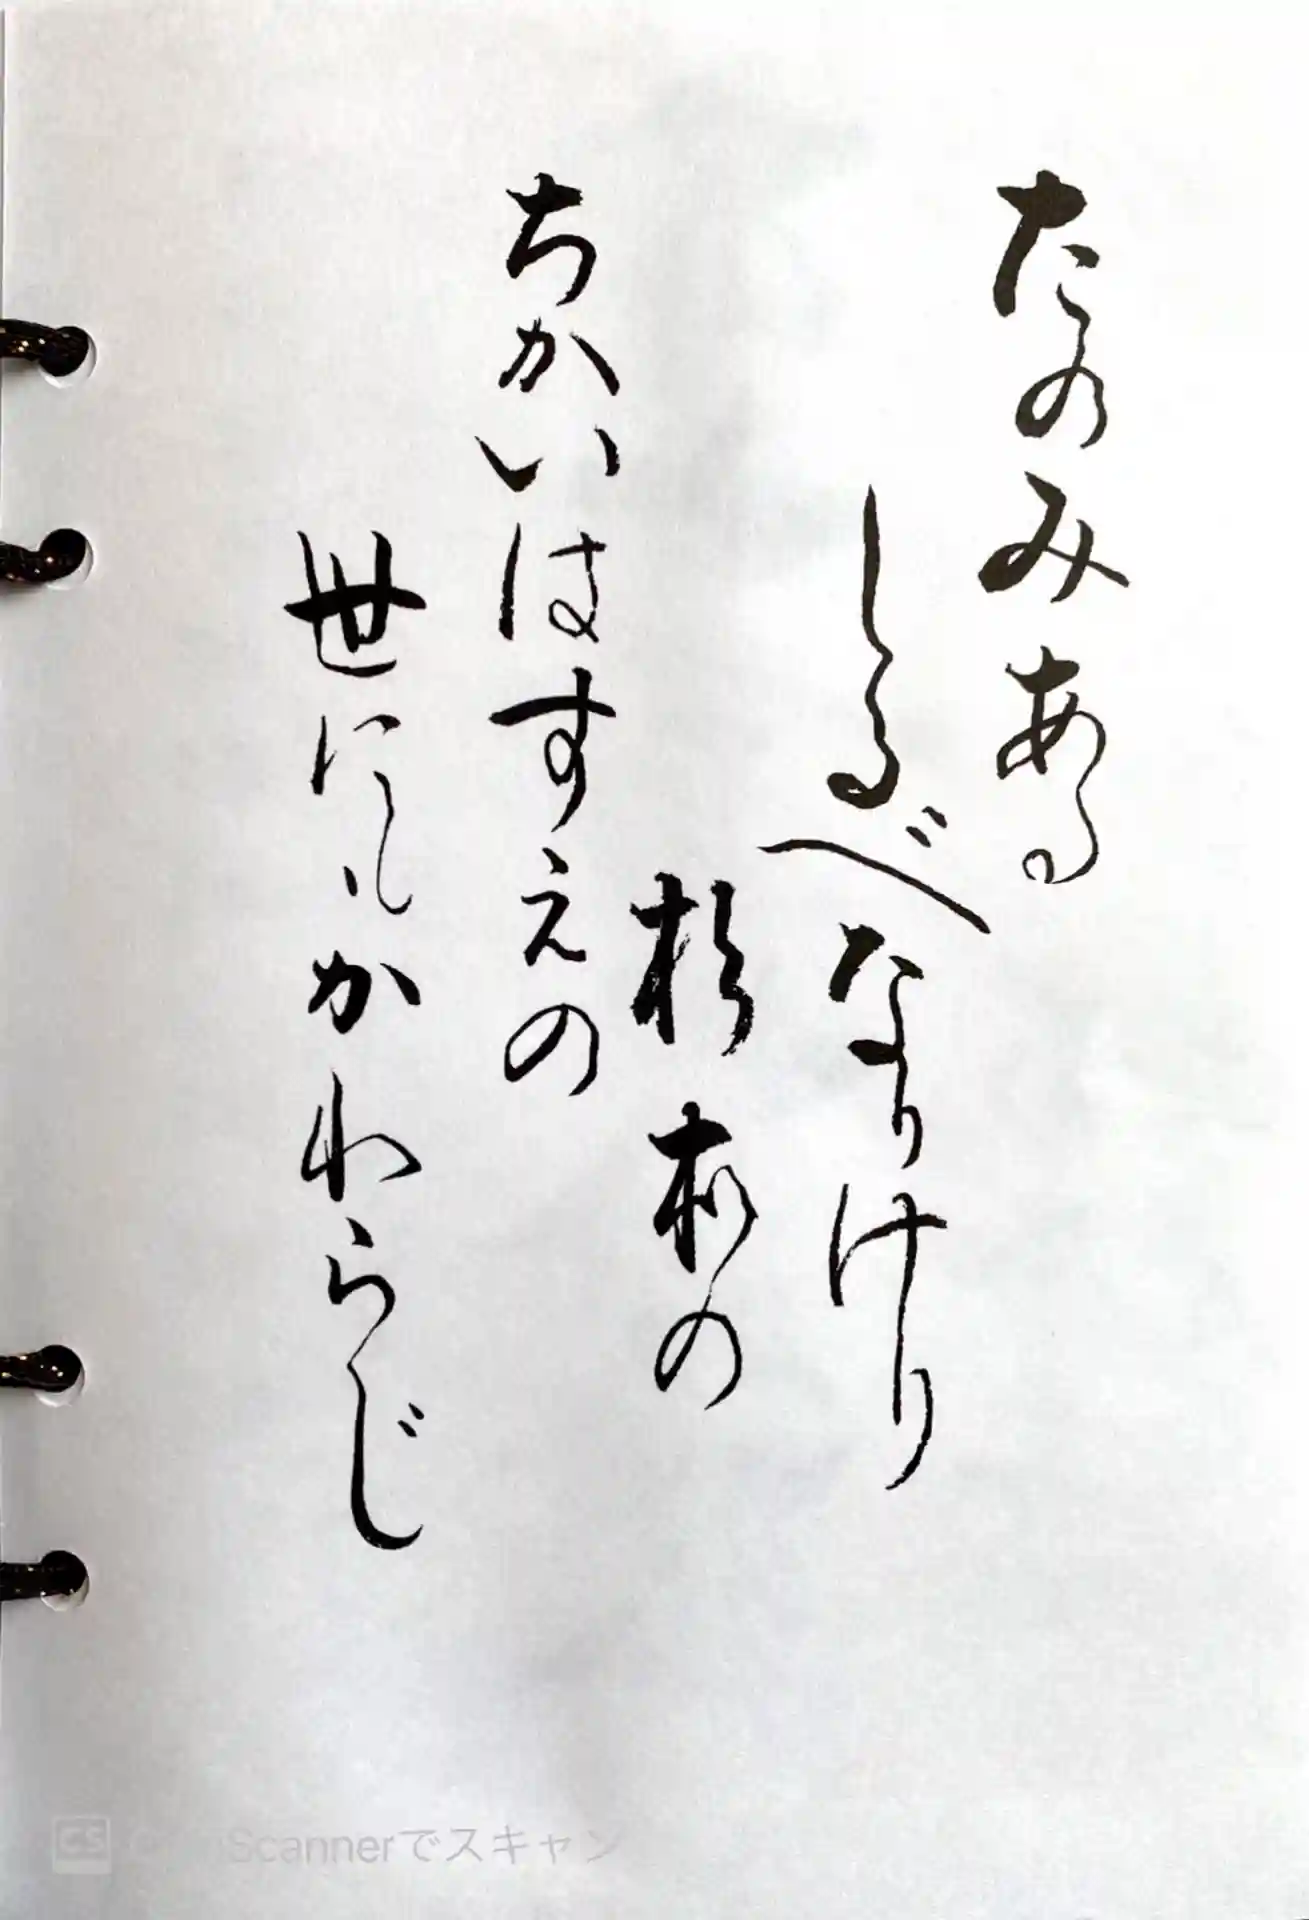 たのみある
しるべなりけり
杉本の
ちかいはすえの
世にもかわらじ
CS CamScannerでスキャン